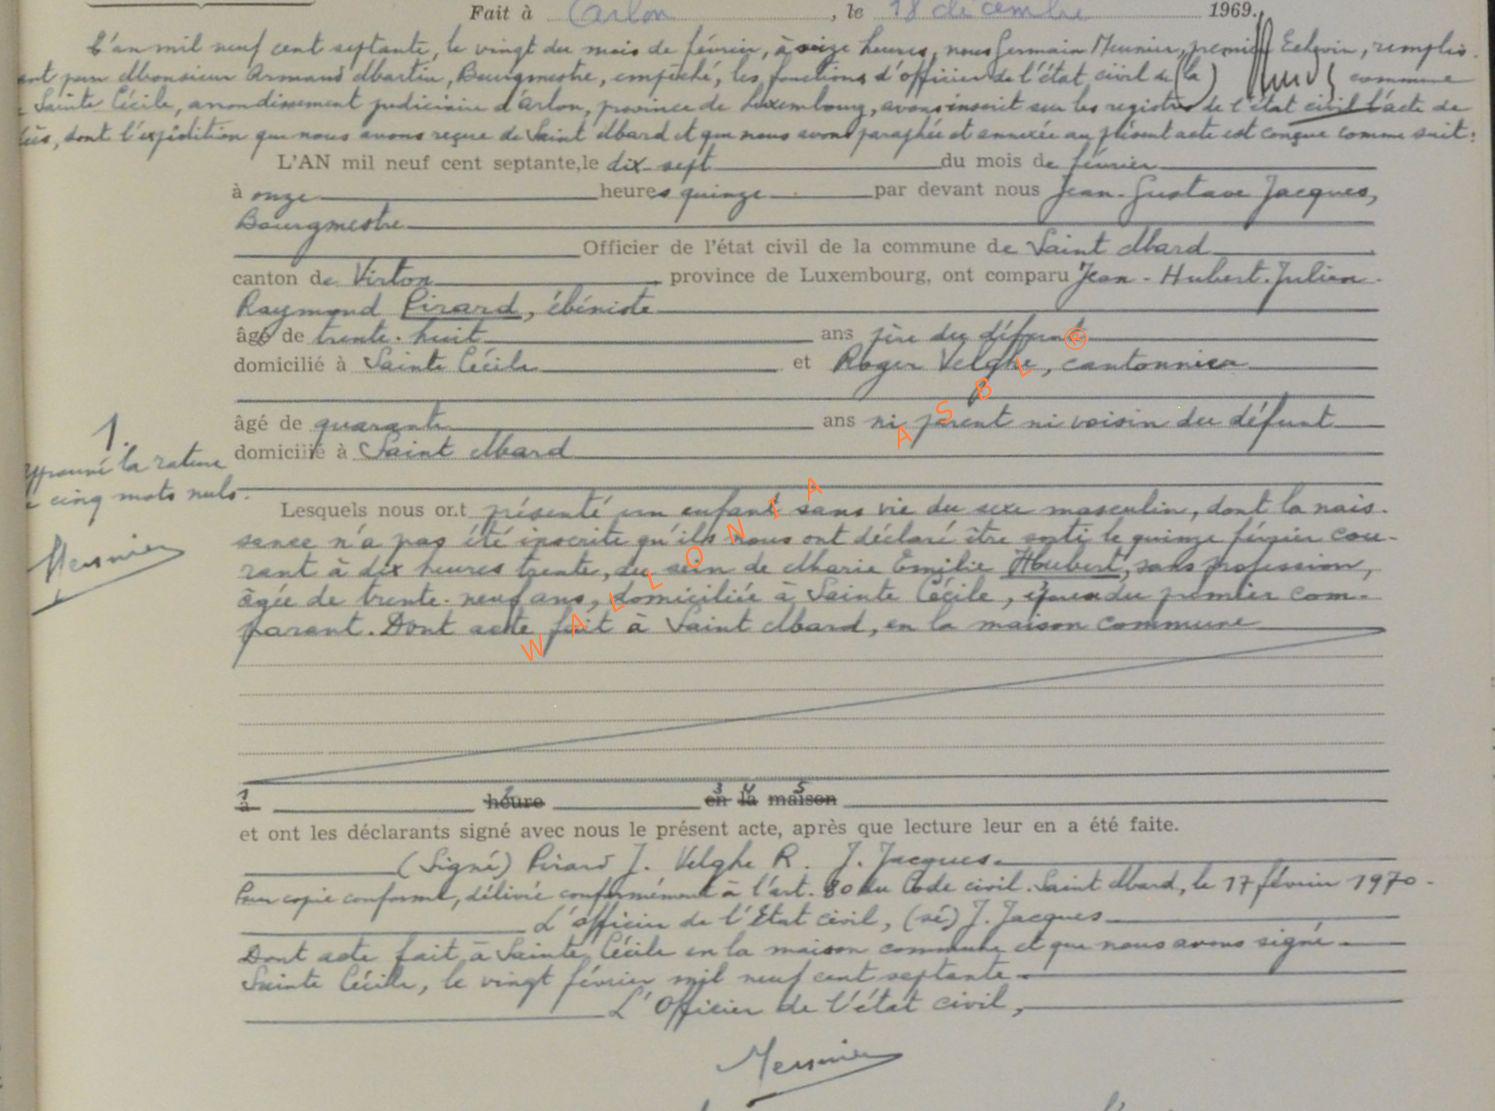 Fait à Arlon, le 18 décembre 1969.
L'an mil neuf cent septante, le vingt du mois de février, à seize heures, nous Germain Meunier, premier Echevin, remplis-
ant pour Monsieur Armand Martin, Bourgmestre, empêché, les fonctions d'officier de l'état civil de la commune
Sainte Cécile, arrondissement judiciaire d'Arlon, province de Luxembourg, avons inscrit sur les registres de l'état civil l'acte de
cès, dont l'expédition que nous avons reçue de Saint Mard et que nous avons paraphée et annexée au présent acte est conçue comme suit:
L'AN mil neuf cent septante, le dix-sept du mois de février
à onze heures quinze par devant nous Jean-Gustave Jacques,
Bourgmestre
Officier de l'état civil de la commune de Saint Mard
canton de Virton province de Luxembourg, ont comparu Jean-Hubert-Julien-
Raymond Pirard, ébéniste
âgé de trente-huit ans père du défunt
domicilié à Sainte Cécile et Roger Velghe, cantonnier
âgé de quarante ans ni parent ni voisin du défunt
domicilié à Saint Mard
1.
Approuvé la rature
de cinq mots nuls.
Meunier
Lesquels nous ont présenté un enfant sans vie du sexe masculin, dont la nais-
sance n'a pas été inscrite qu'ils nous ont déclaré être sorti le quinze février cou-
rant à dix heures trente, du sein de Marie Emilie Houbert, sans profession,
âgée de trente-neuf ans, domiciliée à Sainte Cécile, épouse du premier com-
parant. Dont acte fait à Saint Mard, en la maison commune
1 2 3 4 5
à heure en la maison
et ont les déclarants signé avec nous le présent acte, après que lecture leur en a été faite.
(Signé) Pirard J. Velghe R. J. Jacques.
Pour copie conforme, délivrée conformément à l'art. 80 du Code civil. Saint Mard, le 17 février 1970.
L'officier de l'Etat civil, (sé) J. Jacques
Dont acte fait à Sainte Cécile en la maison commune et que nous avons signé
Sainte Cécile, le vingt février mil neuf cent septante
L'Officier de l'état civil,
Meunier
WALLONIA ASBL ©